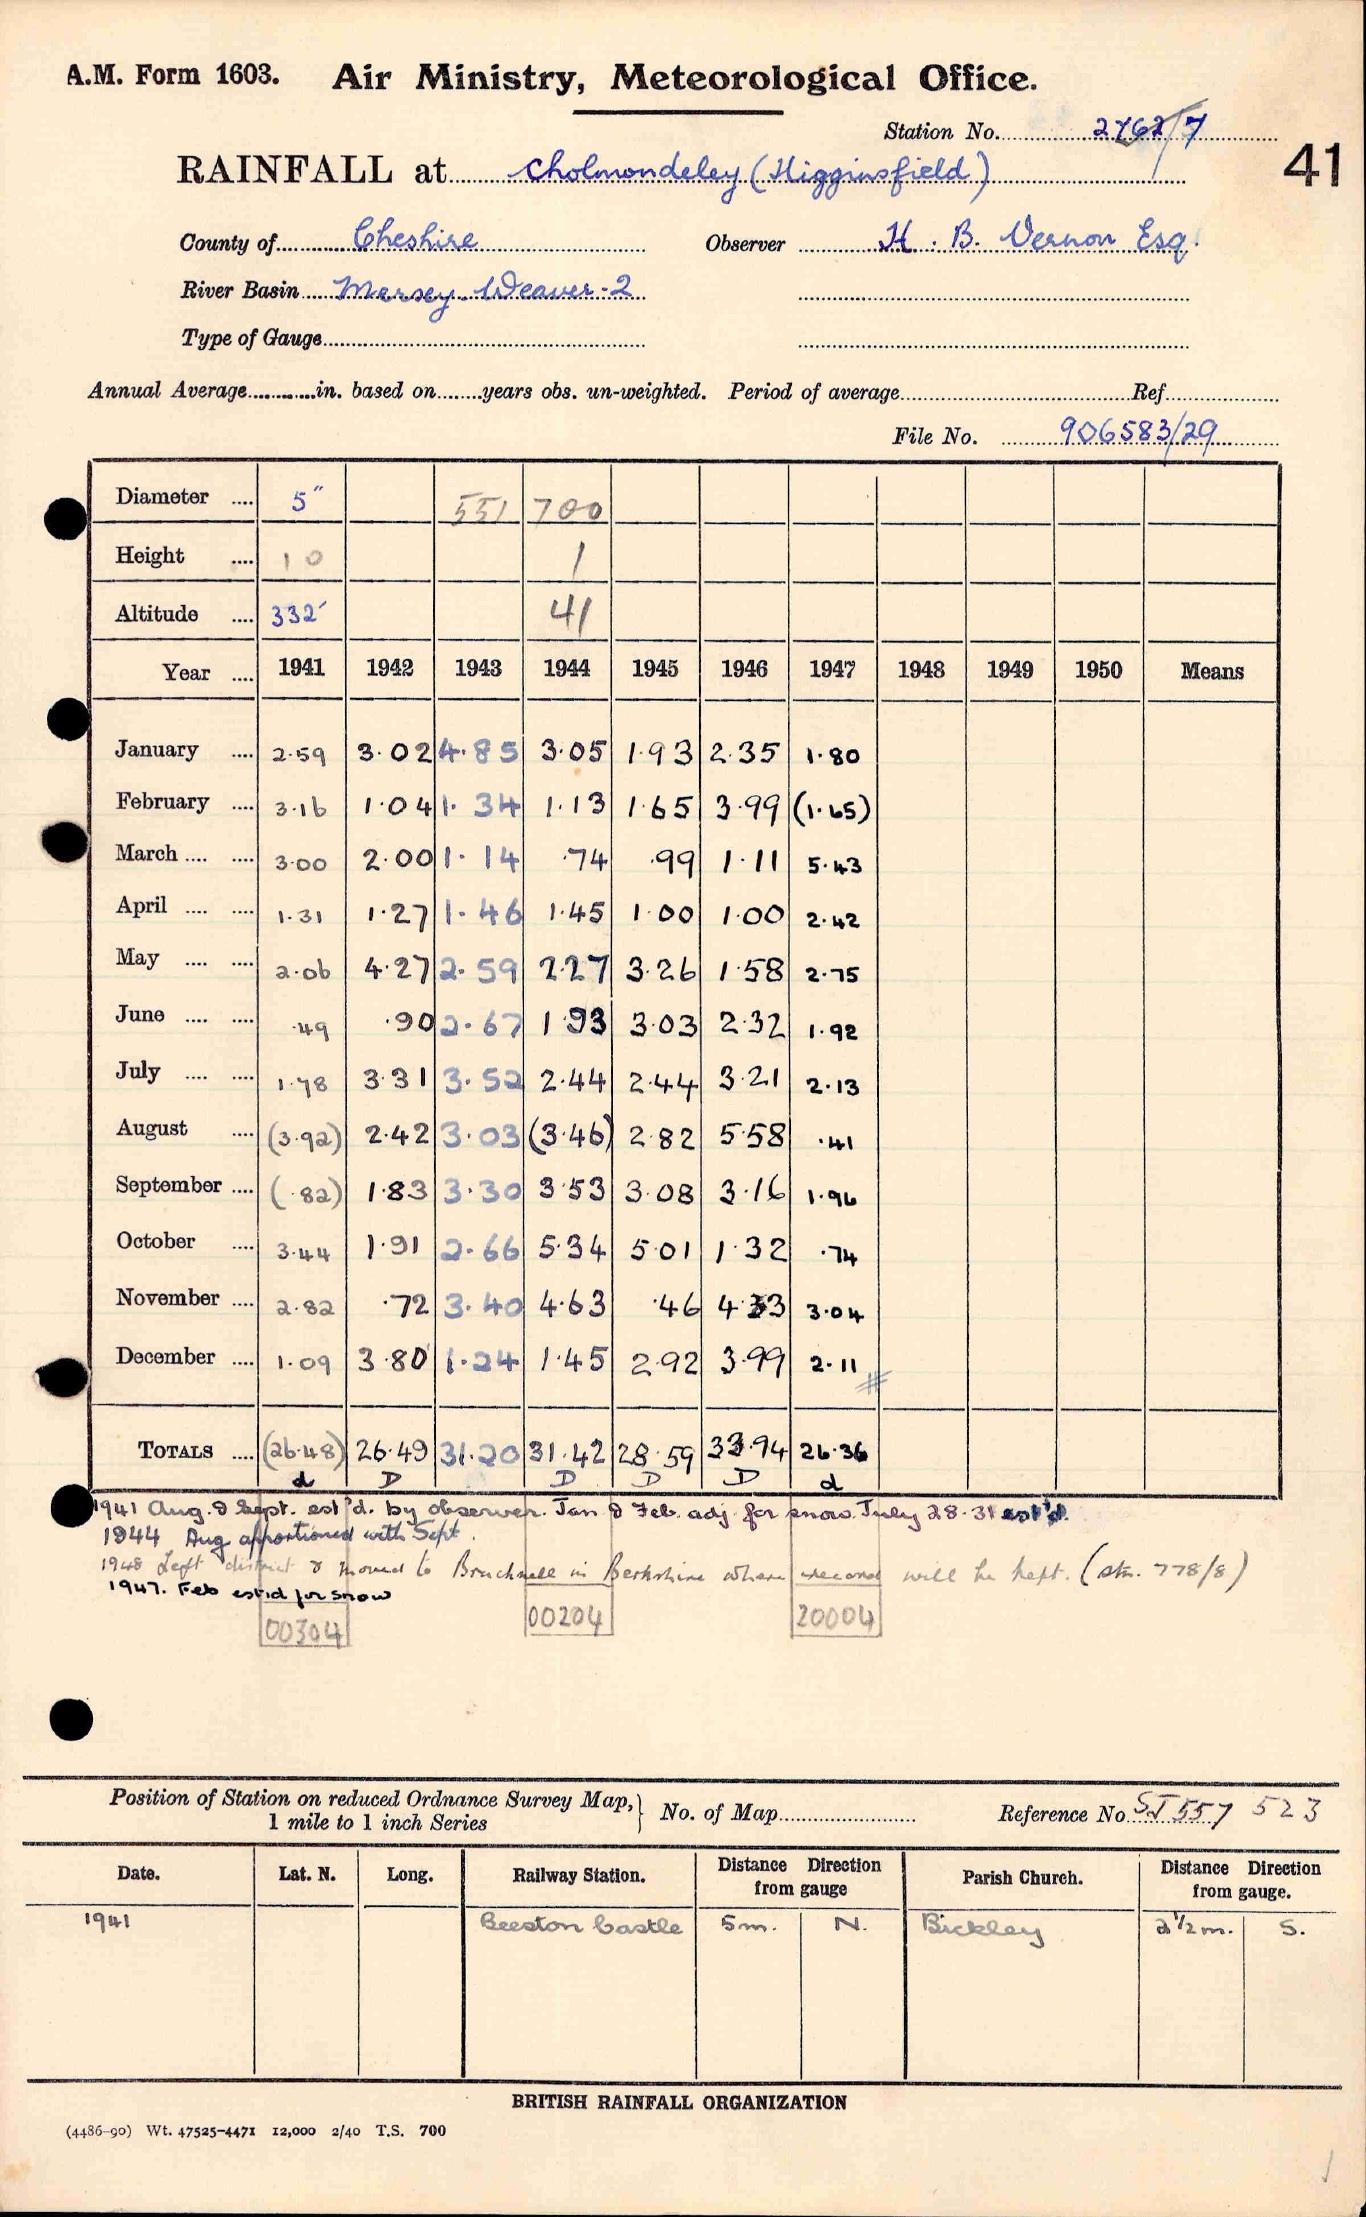 A.M. Form 1603. Air Ministry, Meteorological Office.
Station No. 2762/7
41
RAINFALL at Cholmondeley (Higginsfield)
County of Cheshire Observer H. B. Vernon Esq.
River Basin Mersey-Weaver-2
Type of Gauge
Annual Average in. based on years obs. un-weighted. Period of average Ref
File No. 906583/29
Diameter 5" 551 700
Height 10 1
Altitude 332' 41
Year 1941 1942 1943 1944 1945 1946 1947 1948 1949 1950 Means
January 2.59 3.02 4.85 3.05 1.93 2.35 1.80
February 3.16 1.04 1.34 1.13 1.65 3.99 (1.65)
March 3.00 2.00 1.14 .74 .99 1.11 5.43
April 1.31 1.27 1.46 1.45 1.00 1.00 2.42
May 2.06 4.27 2.59 2.27 3.26 1.58 2.75
June .49 .90 2.67 1.93 3.03 2.32 1.92
July 1.78 3.31 3.52 2.44 2.44 3.21 2.13
August (3.92) 2.42 3.03 (3.46) 2.82 5.58 .41
September (.82) 1.83 3.30 3.53 3.08 3.16 1.96
October 3.44 1.91 2.66 5.34 5.01 1.32 .74
November 2.82 .72 3.40 4.63 .46 4.33 3.04
December 1.09 3.80 1.24 1.45 2.92 3.99 2.11
#
TOTALS (26.48) 26.49 31.20 31.42 28.59 33.94 26.36
d D D D D d
1941 Aug. & Sept. est'd. by observer. Jan & Feb. adj. for snow. July 28-31 est'd.
1944 Aug apportioned with Sept.
1948 Left district & moved to Bracknell in Berkshire where record will be kept. (stn. 778/8)
1947. Feb est'd for snow
00304 00204 20004
Position of Station on reduced Ordnance Survey Map, 1 mile to 1 inch Series } No. of Map Reference No. SJ 557 523
Date. Lat. N. Long. Railway Station. Distance Direction from gauge Parish Church. Distance Direction from gauge.
1941 Beeston Castle 5m. N. Bickley 2½m. S.
BRITISH RAINFALL ORGANIZATION
(4486-90) Wt. 47525-4471 12,000 2/40 T.S. 700